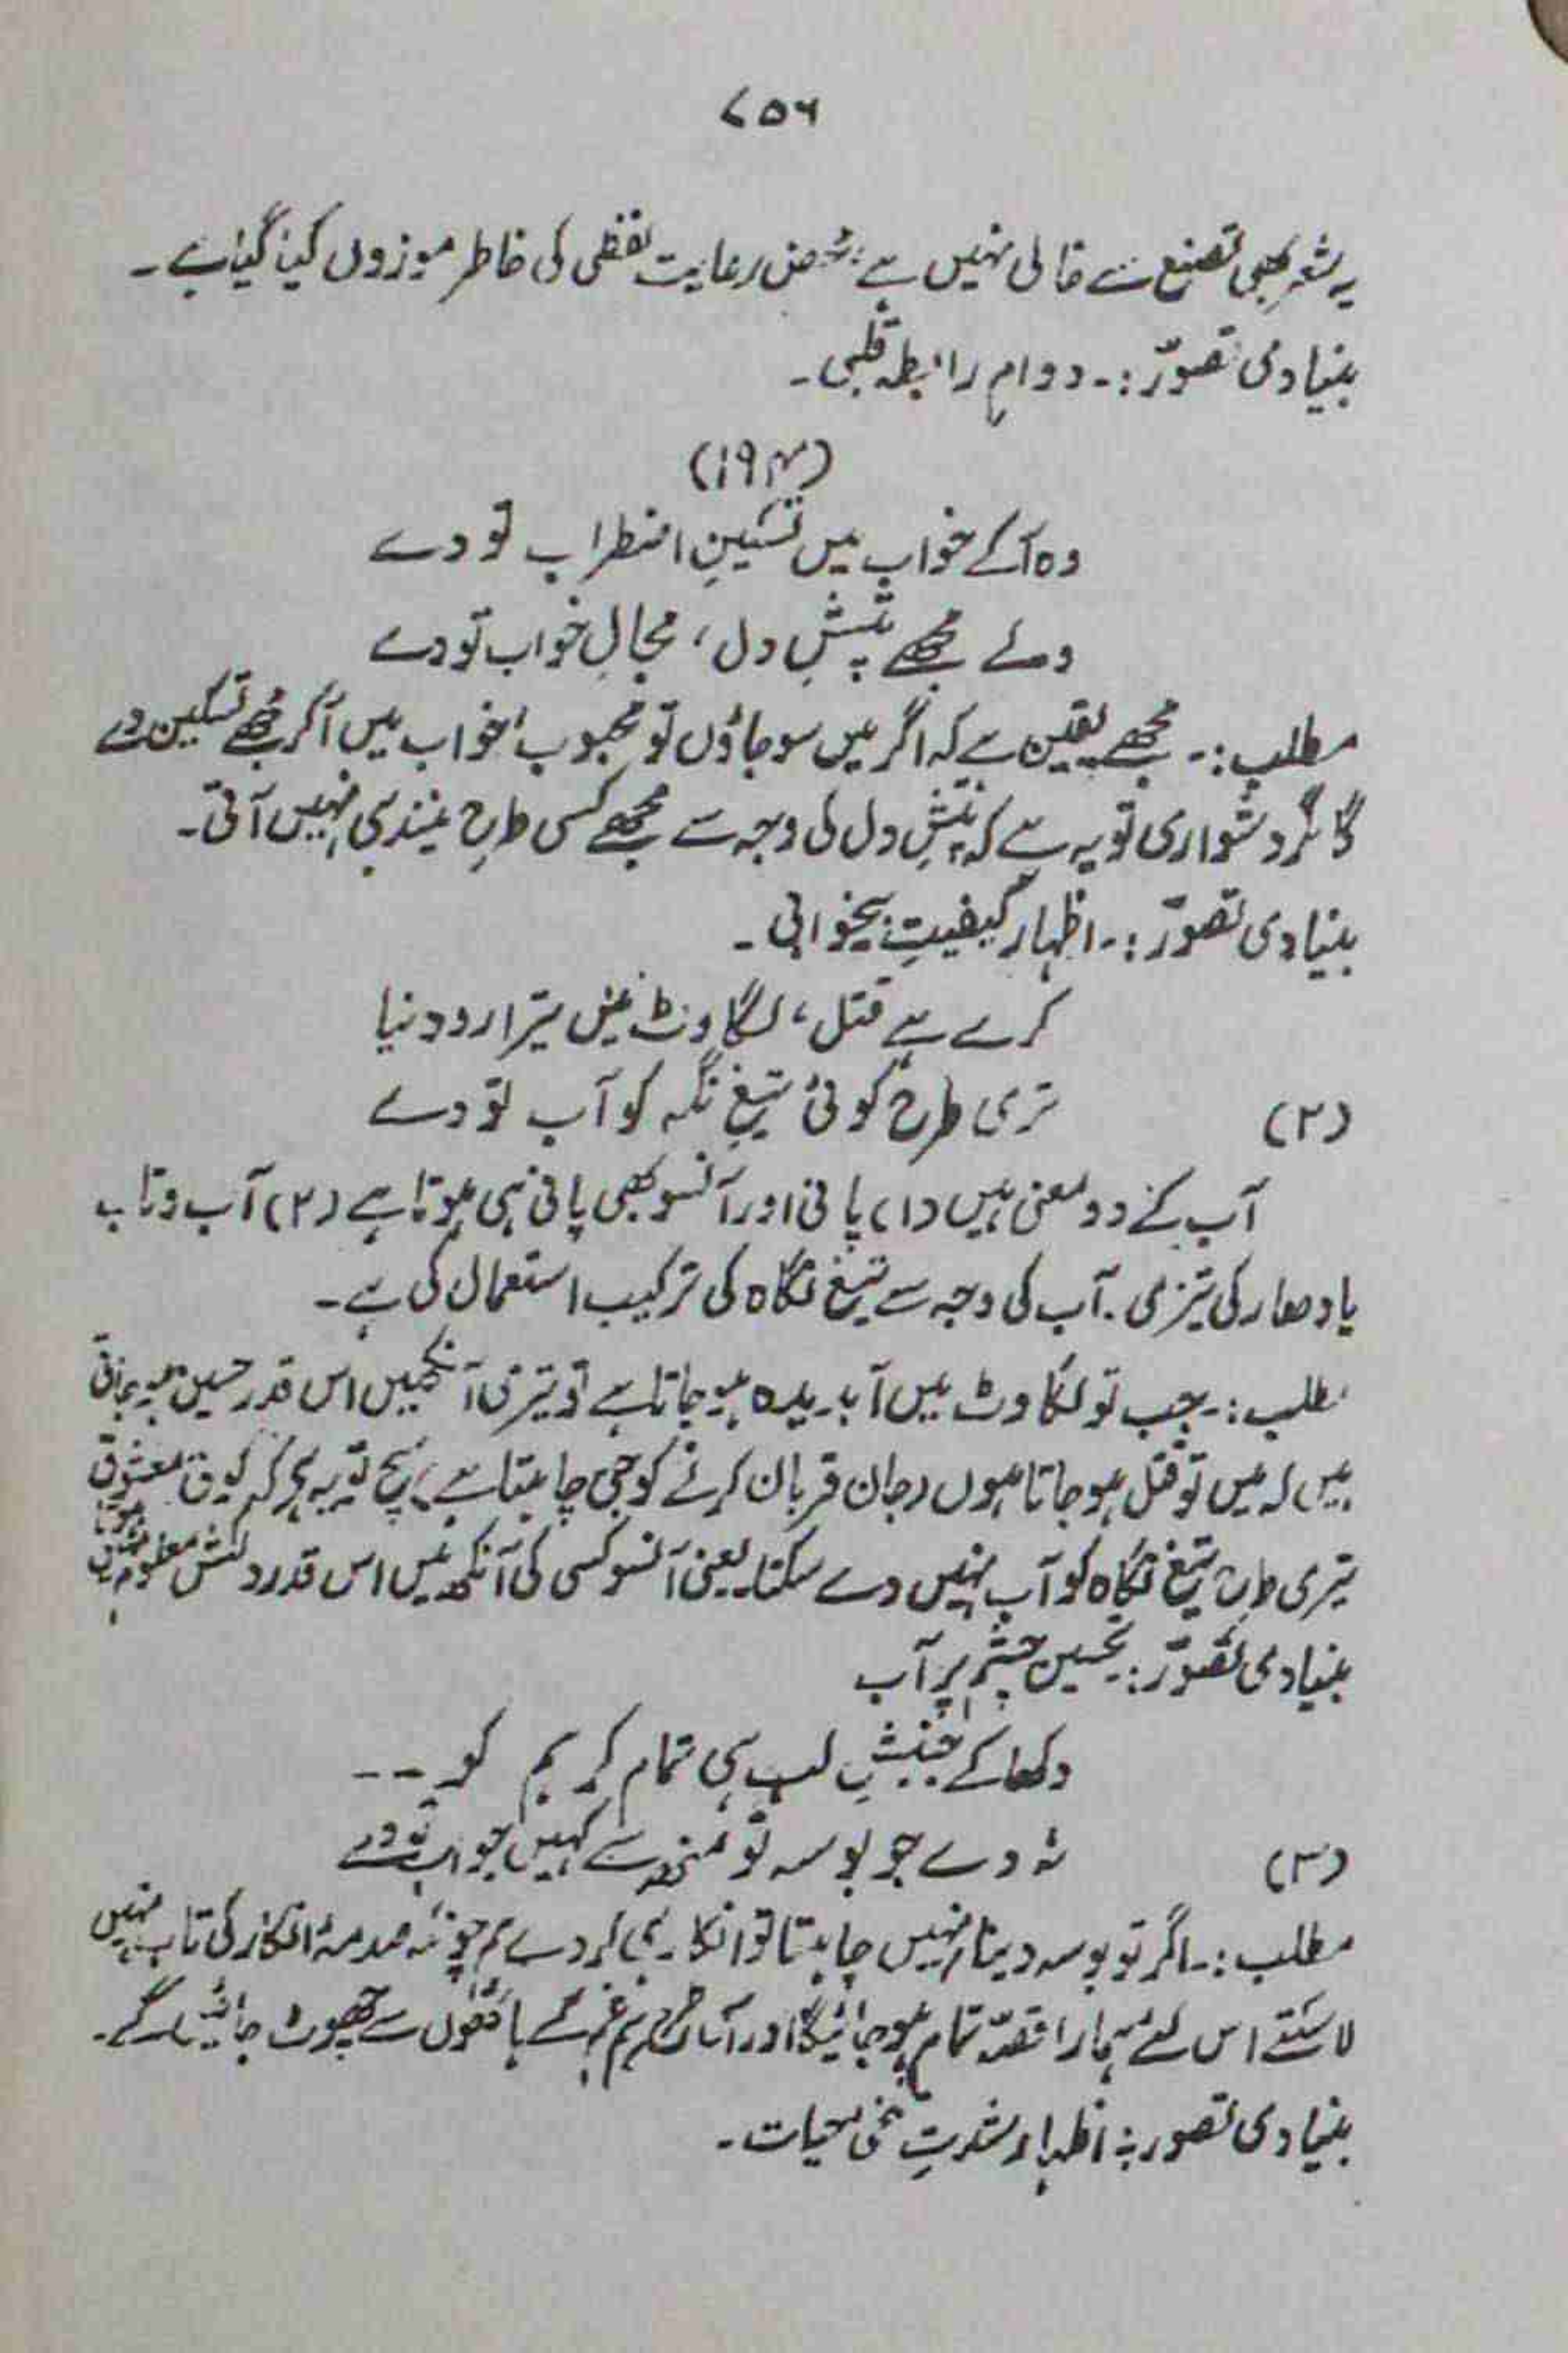 ۷۵۶
یہ شعر بھی تصنع سے خالی نہیں ہے، محض رعایت لفظی کی خاطر موزوں کیا گیا ہے۔
بنیادی تصوّر :۔ دوامِ رابطہ قلبی۔
(۱۹۴)
وہ آکے خواب میں تسکینِ اضطراب تو دے
ولے مجھے تپشِ دل، مجالِ خواب تو دے
مطلب :۔ مجھے یقین ہے کہ اگر میں سوجاؤں تو محبوب خواب میں آکر مجھے تسکین دے
گا مگر دشواری تو یہ ہے کہ تپشِ دل کی وجہ سے مجھے کسی طرح نیند ہی نہیں آتی۔
بنیادی تصوّر :۔ اظہار کیفیتِ بیخوابی۔
کرے ہے قتل، لگاوٹ میں تیرا رو دینا
تری طرح کوئی تیغِ نگہ کو آب تو دے
(۲)
آب کے دو معنی ہیں (۱) پانی اور آنسو بھی پانی ہی ہوتا ہے (۲) آب و تاب
یا دھار کی تیزی۔ آب کی وجہ سے تیغ نگاہ کی ترکیب استعمال کی ہے۔
مطلب :۔ جب تو لگاوٹ میں آبدیدہ ہوجاتا ہے تو تیری آنکھیں اس قدر حسین ہوجاتی
ہیں کہ میں تو قتل ہوجاتا ہوں (جان قربان کرنے کو جی چاہتا ہے) سچ تو یہ ہے کہ کوئی معشوق
تیری طرح تیغ نگاہ کو آب نہیں دے سکتا یعنی آنسو کسی کی آنکھ میں اس قدر دلکش معلوم نہیں ہوتا
بنیادی تصوّر :۔ تحسین چشم پر آب
دکھا کے جنبشِ لب ہی تمام کر ہم کو ۔۔
نہ دے جو بوسہ تو منہ سے کہیں جواب تو دے
(۳)
مطلب :۔ اگر تو بوسہ دینا نہیں چاہتا تو انکار ہی کردے ہم چونکہ صدمۂ انکار کی تاب نہیں
لاسکتے اس لئے ہمارا قصّہ تمام ہوجائیگا اور اس طرح ہم غم کے ہاتھوں سے چھوٹ جائیں گے۔
بنیادی تصور :۔ اظہار شدتِ تلخی حیات۔